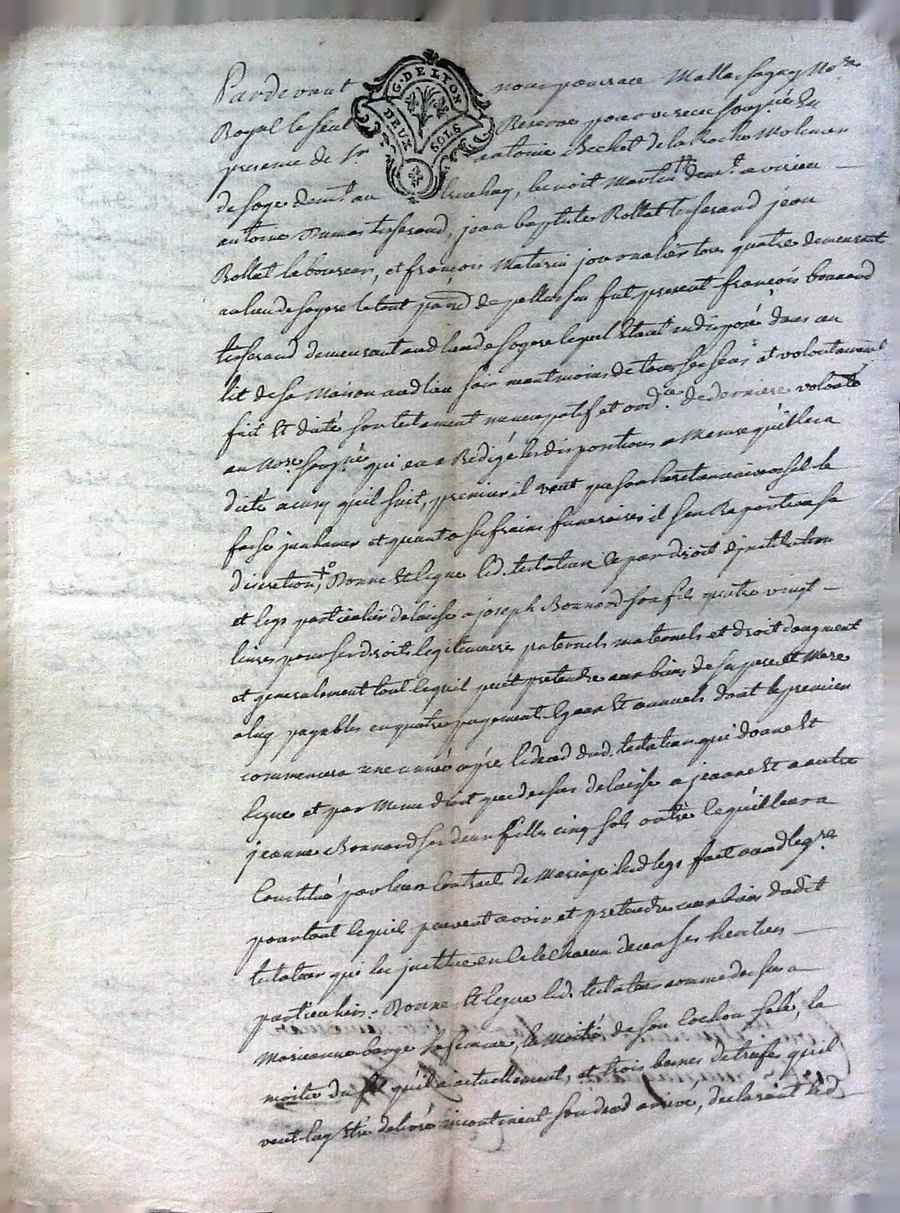 Pardevant nous pourvace Mathe Sagay No.re
G. DE LYON
DEUX SOLS
Royal le seul Reservé pour soussigné en
presence de Sr antoine Bechet de la Roche
de soye demt au benoit demt a
antoine Dumas tisserand, jean baptiste Rollat tisserand jean
Rollat laboureur, et françois Matarin journalier tous quatre demeurant
au lieu de soyere le tout parr.e de fut present françois bonnard
tisserand demeurant aud. lieu de soyere lequel Etant indisposé dans un
lit de sa Maison aud lieu sain neantmoins de tous ses sens et volontairement
fait Et dicté son testament nuncupatif et ord.ce de derniere volonté
au No.re soussigné qui en a Redigé les dispositions a Mesure quil lera
dicté ainsy quil suit, premier il veut que son heretier universel le
fasse inhumer et quant a ses fraix funeraires il sen Raporte a sa
discretion, Donne Et legue led. testateur et par droit dinstitution
et legs particulier delaisse a joseph Bonnard son fils quatre vingt
livres pour ses droits legitimaires paternels maternels et droit daugment
et generalement tout ce quil peut pretendre aux biens de ses pere et Mere
payables en quatre payement Egaux Et annuels dont le premier
commencera une année apré le deced dud. testateur qui donne Et
legue et par Meme droit que dessus delaisse a jeanne Et a autre
jeanne Bonnard ses deux filles cinq sols outre ce quil leur a
Constitué par leur Contract de Mariage led legs fait
pour tout ce quil peuvent avoir et pretendre aux biens dudit
testateur qui les institue en ce le chacun deux ses heritiers
particuliers. Donne Et legue led. testateur comme dessus a
Marieanne barge sa femme, la Moitié de son Cochon salé, la
moitié du quil a actuellement, et trois bennes de trufes quil
veut luy Etre delivré incontinent son deced arrivé, declarant led.